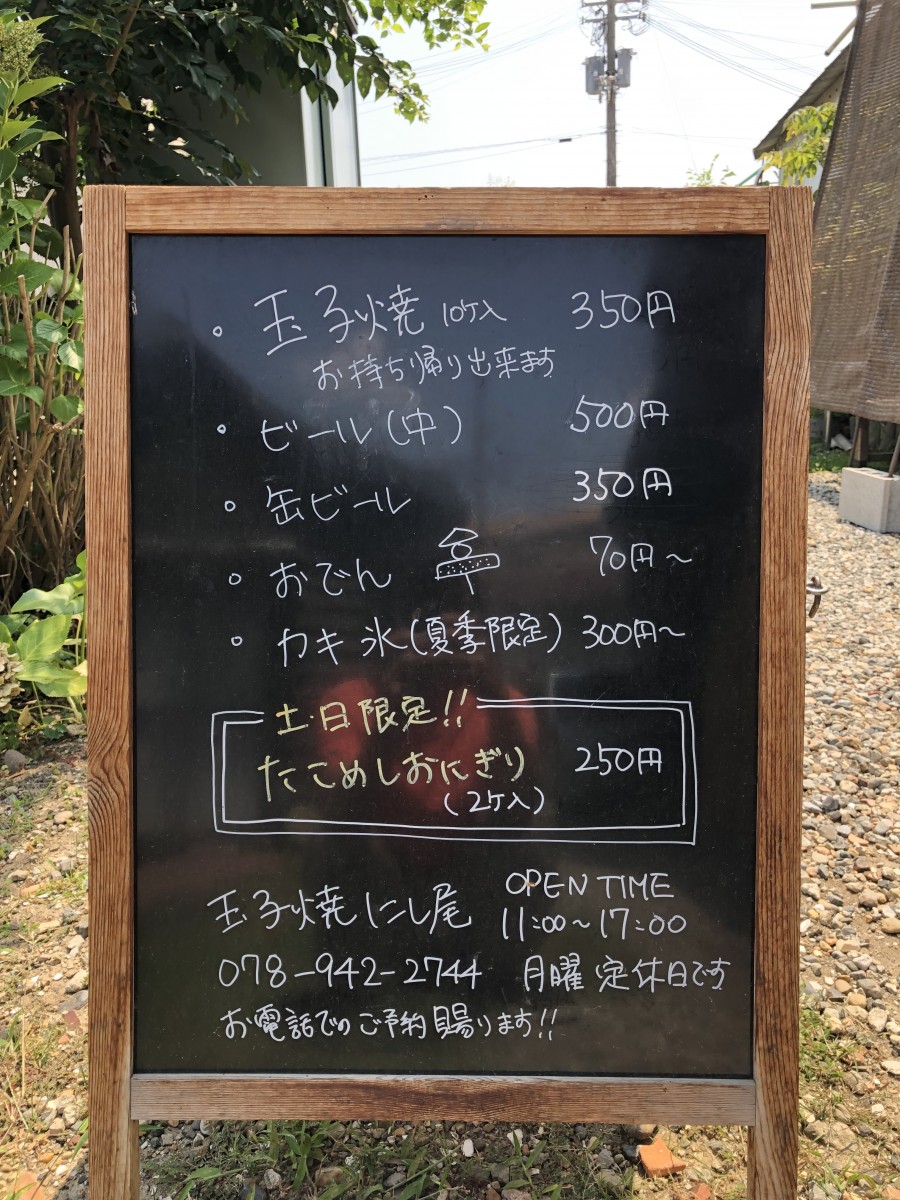 ・玉子焼 10ケ入 350円
お持ち帰り出来ます
・ビール(中) 500円
・缶ビール 350円
・おでん 70円~
・カキ氷(夏季限定) 300円~
土・日限定!!
たこめしおにぎり 250円
(2ケ入)
玉子焼にし尾 OPEN TIME
11:00~17:00
078-942-2744 月曜定休日です
お電話でのご予約賜ります!!